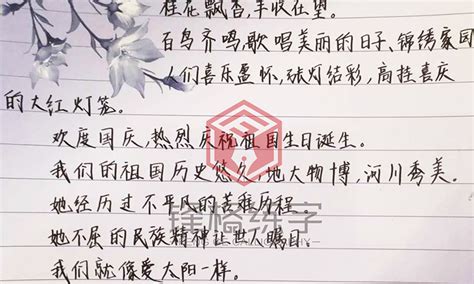 桂花飘香,丰收在望。
百鸟齐鸣,歌唱美丽的日子、锦绣家园
人们喜乐盈怀,张灯结彩,高挂喜庆
的大红灯笼。
欢度国庆,热烈庆祝祖国生日诞生。
我们的祖国历史悠久,地大物博,河川秀美。
她经历过不平凡的苦难历程。
她不屈的民族精神让世人瞩目。
我们就像爱太阳一样。
练字